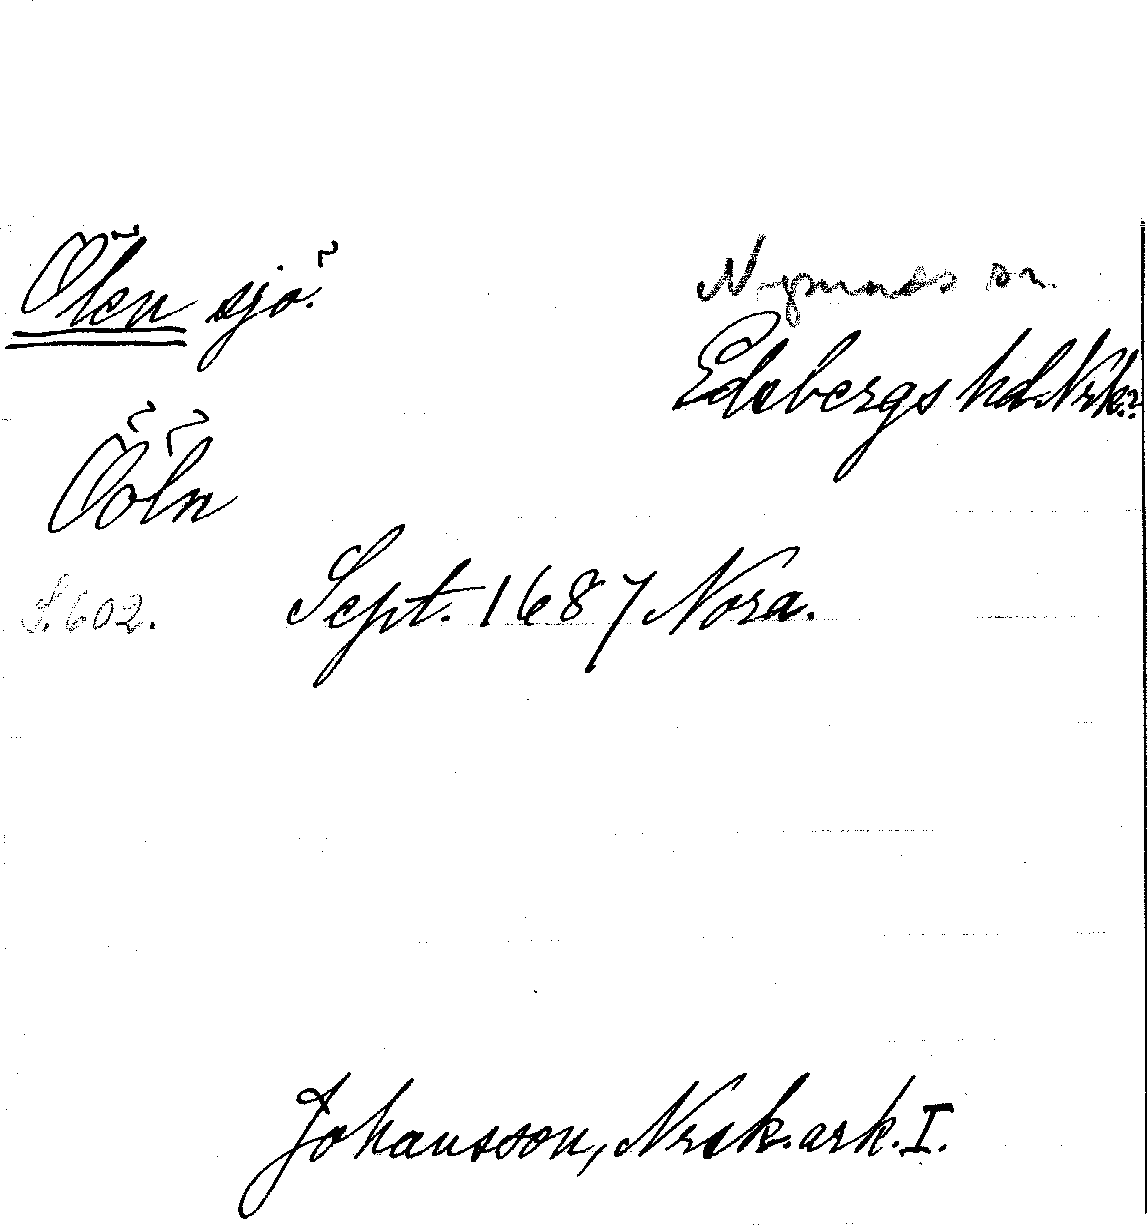 Ölen sjö.
Nysunds sn.
Edsbergs hd. Nrk.
Ööln
S. 602.
Sept. 1687 Nora.
Johansson, Nrsk. ark. I.